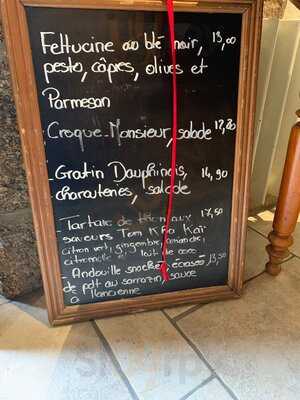 Fettucine au blé noir, 13,00
pesto, câpres, olives et
Parmesan
Croque-Monsieur, salade
- Gratin Dauphinois, 14,90
charcuteries, salade
- Tartare de 17,50
saveurs Tom Kha Kaï
citron vert, gingembre, amandes,
citronnelle et lait de coco
- Andouille snackée, écrasé 13,50
de pdt au sarrazin, sauce
à l'ancienne